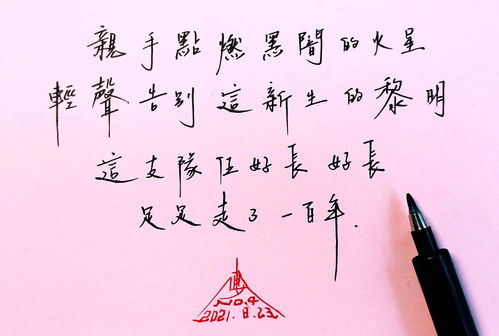 親手點燃黑闇的火星
輕聲告別這新生的黎明
這支隊伍好長好長
足足走了一百年.
NO.4
2021.8.23